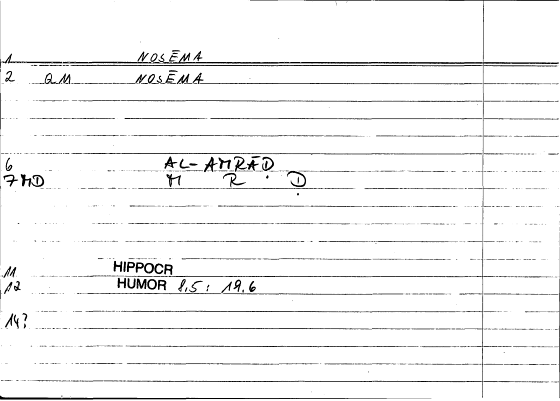 1 NOSĒMA
2 QM NOSĒMA
6 AL-AMRĀḌ
7 MD M R Ḍ
11 HIPPOCR
12 HUMOR 8,5 : 19,6
14?